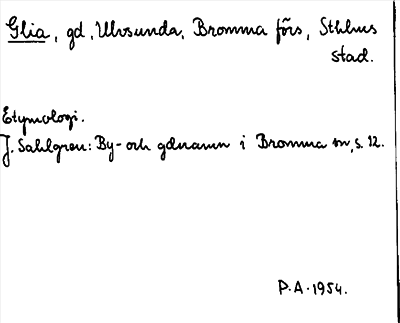 Glia, gd, Ulvsunda, Bromma förs, Sthlms
stad.
Etymologi.
J. Sahlgren: By- och gdnamn i Bromma sn, s. 12.
P.A. 1954.